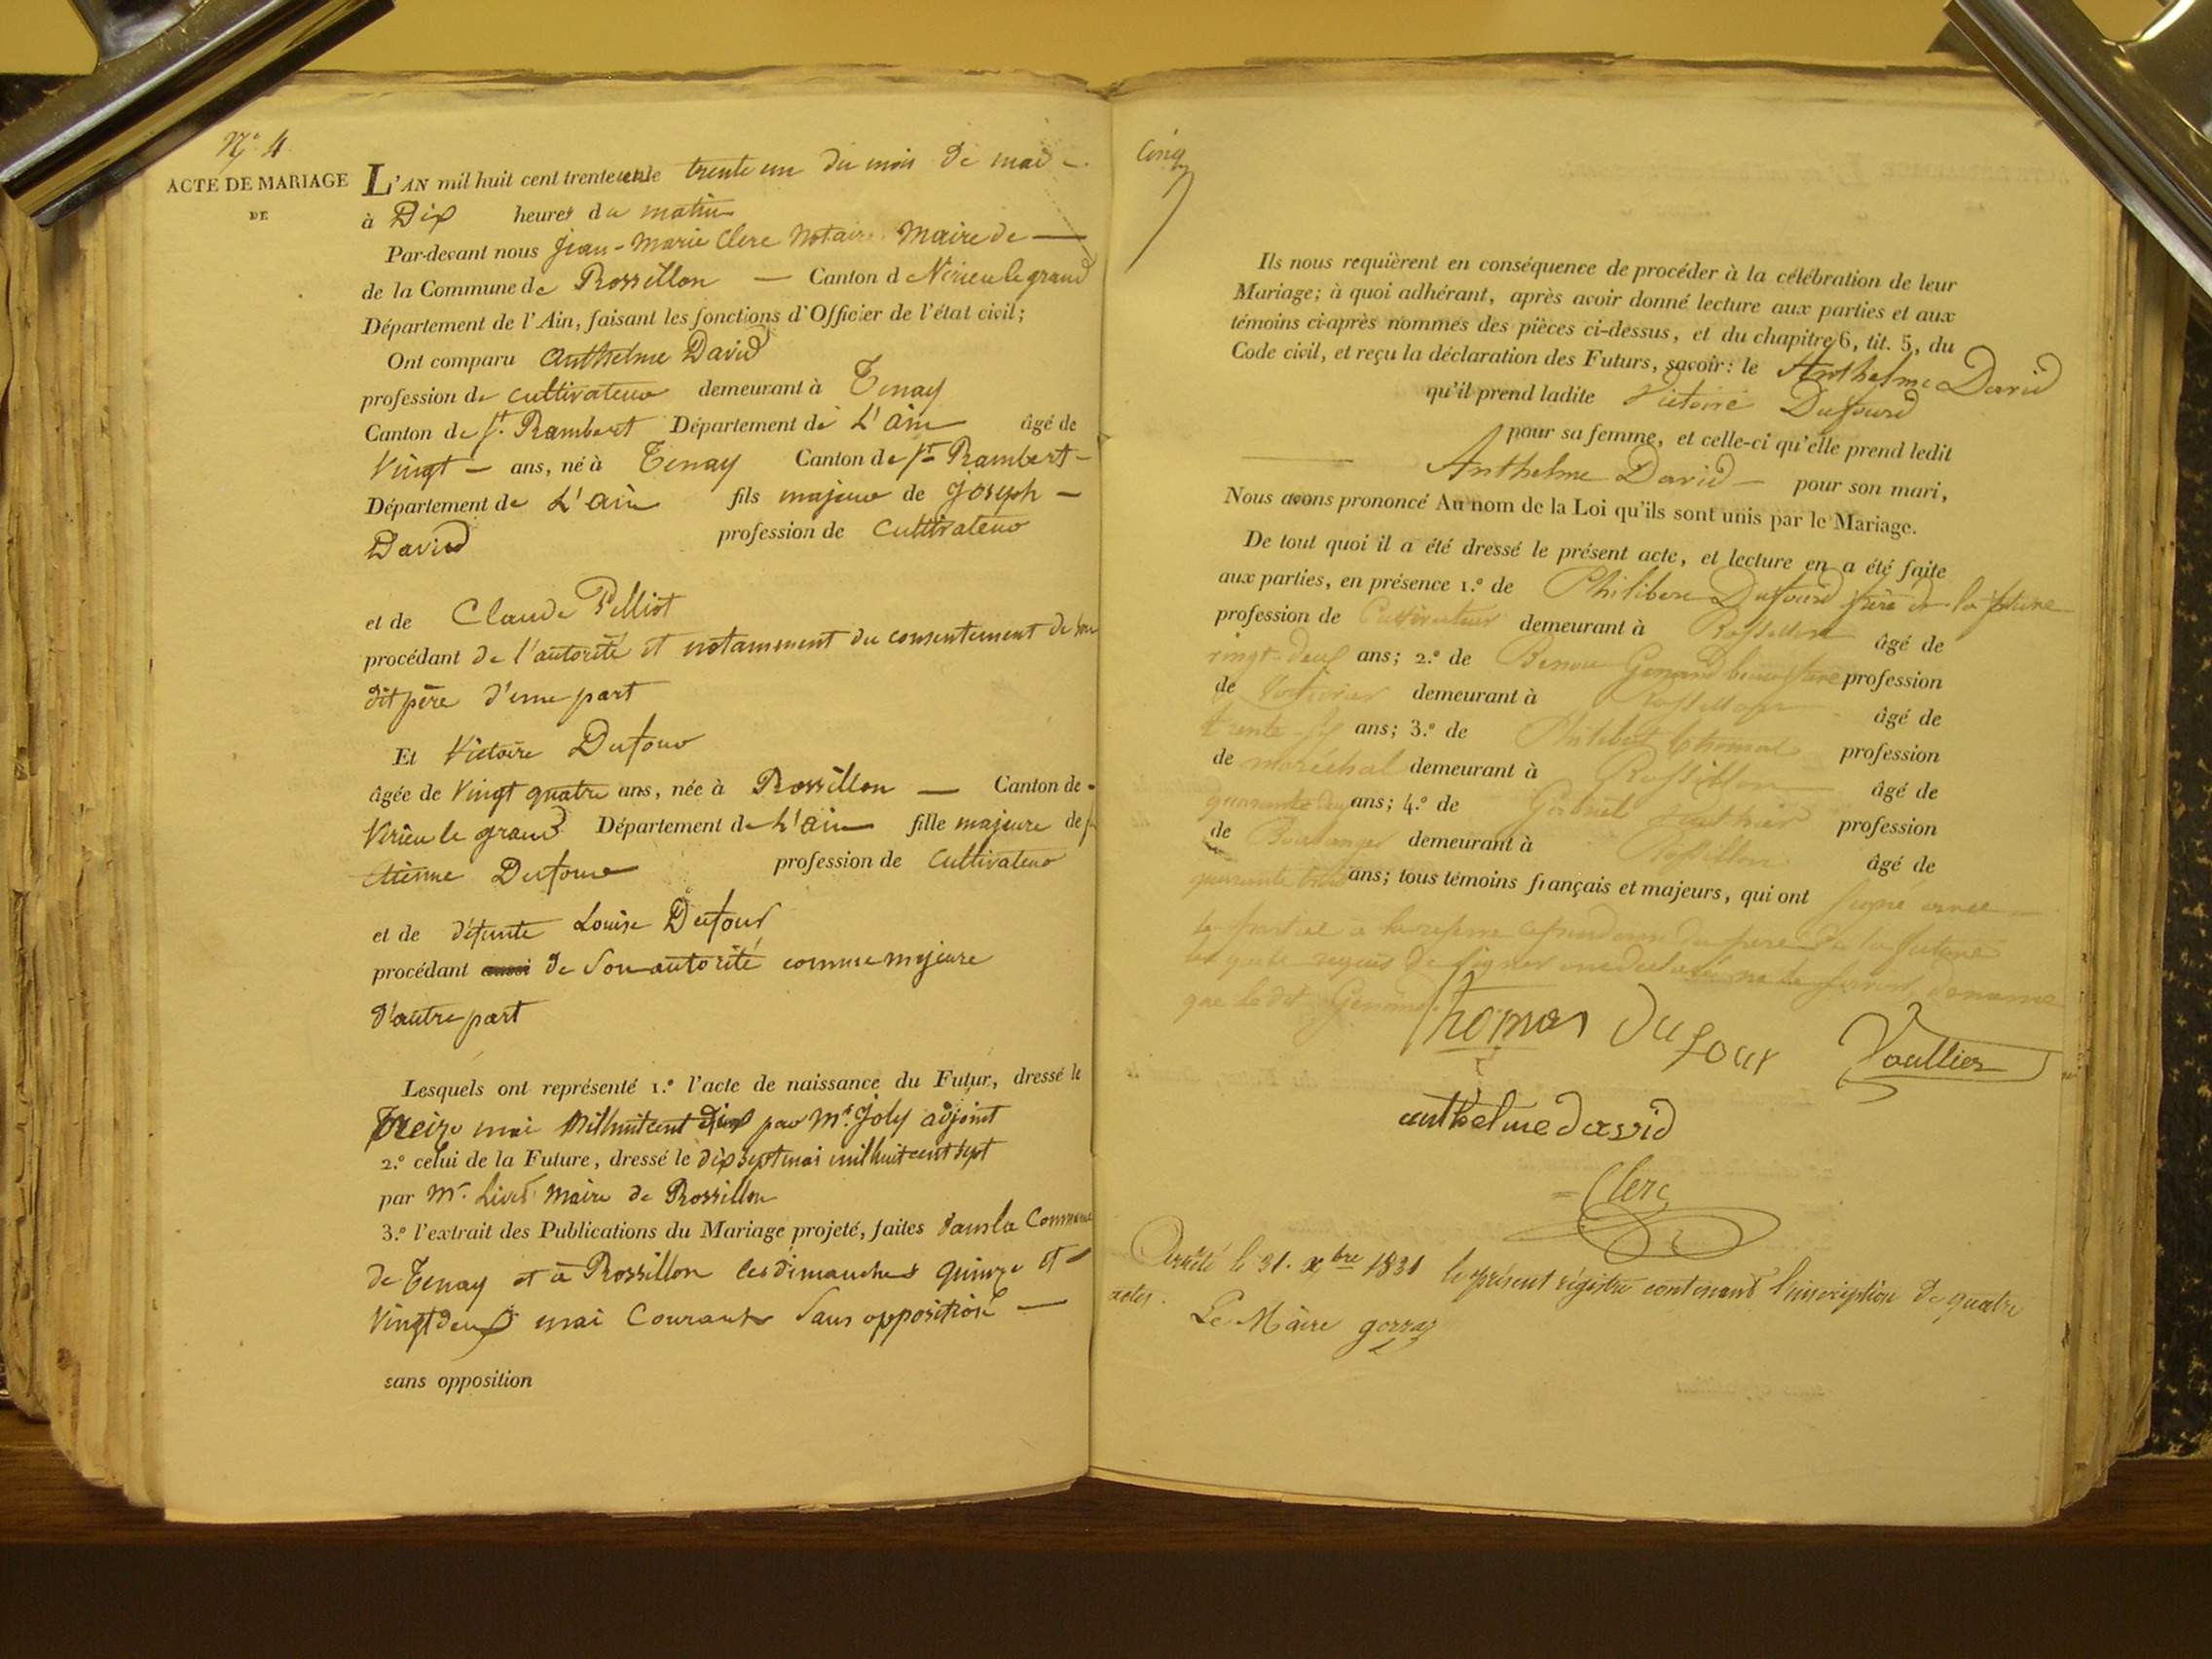 N.° 4
ACTE DE MARIAGE
DE
L'AN mil huit cent trente un le trente un du mois de mai
à Dix heures du matin
Par-devant nous Jean-Marie Clerc Notaire Maire de
de la Commune de Rossillon Canton d Virieu le grand
Département de l'Ain, faisant les fonctions d'Officier de l'état civil;
Ont comparu Anthelme David
profession de cultivateur demeurant à Tenay
Canton de St. Rambert Département de L'ain âgé de
Vingt ans, né à Tenay Canton de St Rambert
Département de L'ain fils majeur de Joseph
David profession de Cultivateur
et de Claude Pelliot
procédant de l'autorité et notamment du consentement de son
dit père d'une part
Et Victoire Dufour
âgée de Vingt quatre ans, née à Rossillon Canton de
Virieu le grand Département de L'ain fille majeure de
Etienne Dufour profession de Cultivateur
et de défunte Louise Dufour
procédant de Son autorité comme majeure
D'autre part
Lesquels ont représenté 1.° l'acte de naissance du Futur, dressé le
Treize mai Mil huit cent dix par Mr. Joly adjoint
2.° celui de la Future, dressé le dix sept mai mil huit cent sept
par Mr. Livet Maire de Rossillon
3.° l'extrait des Publications du Mariage projeté, faites dans la Commune
de Tenay et à Rossillon les dimanches quinze et
Vingt deux mai Courant Sans opposition
sans opposition
Cinq
Ils nous requièrent en conséquence de procéder à la célébration de leur
Mariage; à quoi adhérant, après avoir donné lecture aux parties et aux
témoins ci-après nommés des pièces ci-dessus, et du chapitre 6, tit. 5, du
Code civil, et reçu la déclaration des Futurs, savoir: le Anthelme David
qu'il prend ladite Victoire Dufourd
pour sa femme, et celle-ci qu'elle prend ledit
Anthelme David pour son mari,
Nous avons prononcé Au nom de la Loi qu'ils sont unis par le Mariage.
De tout quoi il a été dressé le présent acte, et lecture en a été faite
aux parties, en présence 1.° de Philibert Dufourd frère de la future
profession de Cultivateur demeurant à Rossillon âgé de
vingt-deux ans; 2.° de Genand beau frère profession
de demeurant à Rossillon âgé de
trente ans; 3.° de Philibert Thomas profession
de maréchal demeurant à Rossillon âgé de
quarante ans; 4.° de Gabriel profession
de Boulanger demeurant à Rossillon âgé de
quarante trois ans; tous témoins français et majeurs, qui ont signé avec
les parties à la du père de la future
requis de signer ne le savoir
que le dit Genand
Thomas Dufour Vaullier
anthelme david
Clerc
Arrêté le 31. Xbre 1831 le présent régistre contenant l'inscription de quatre
actes.
Le Maire gorraz